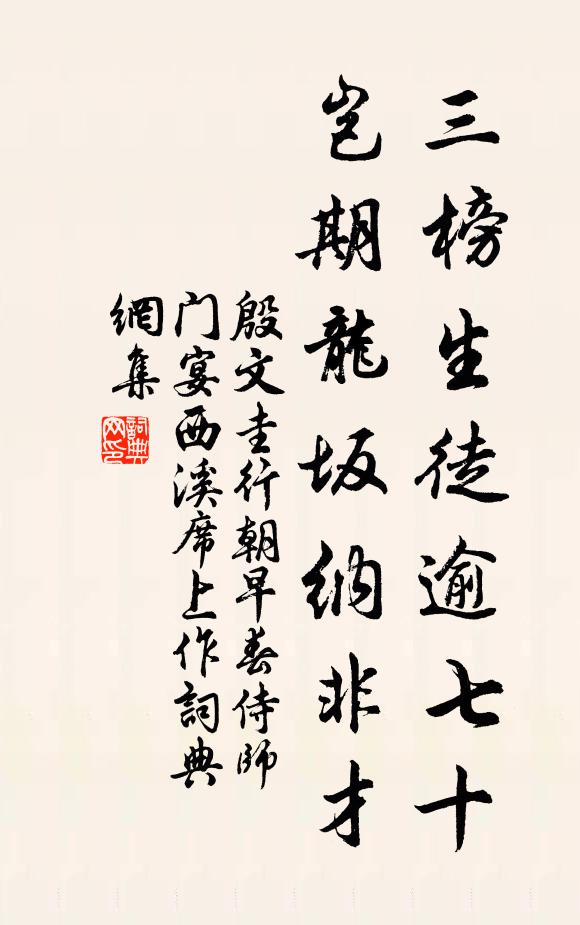 三榜生徒逾七十
岂期龍坂纳非才
殷文圭行朝早春侍師
门宴西溪席上作詞典
網集
詞典網印